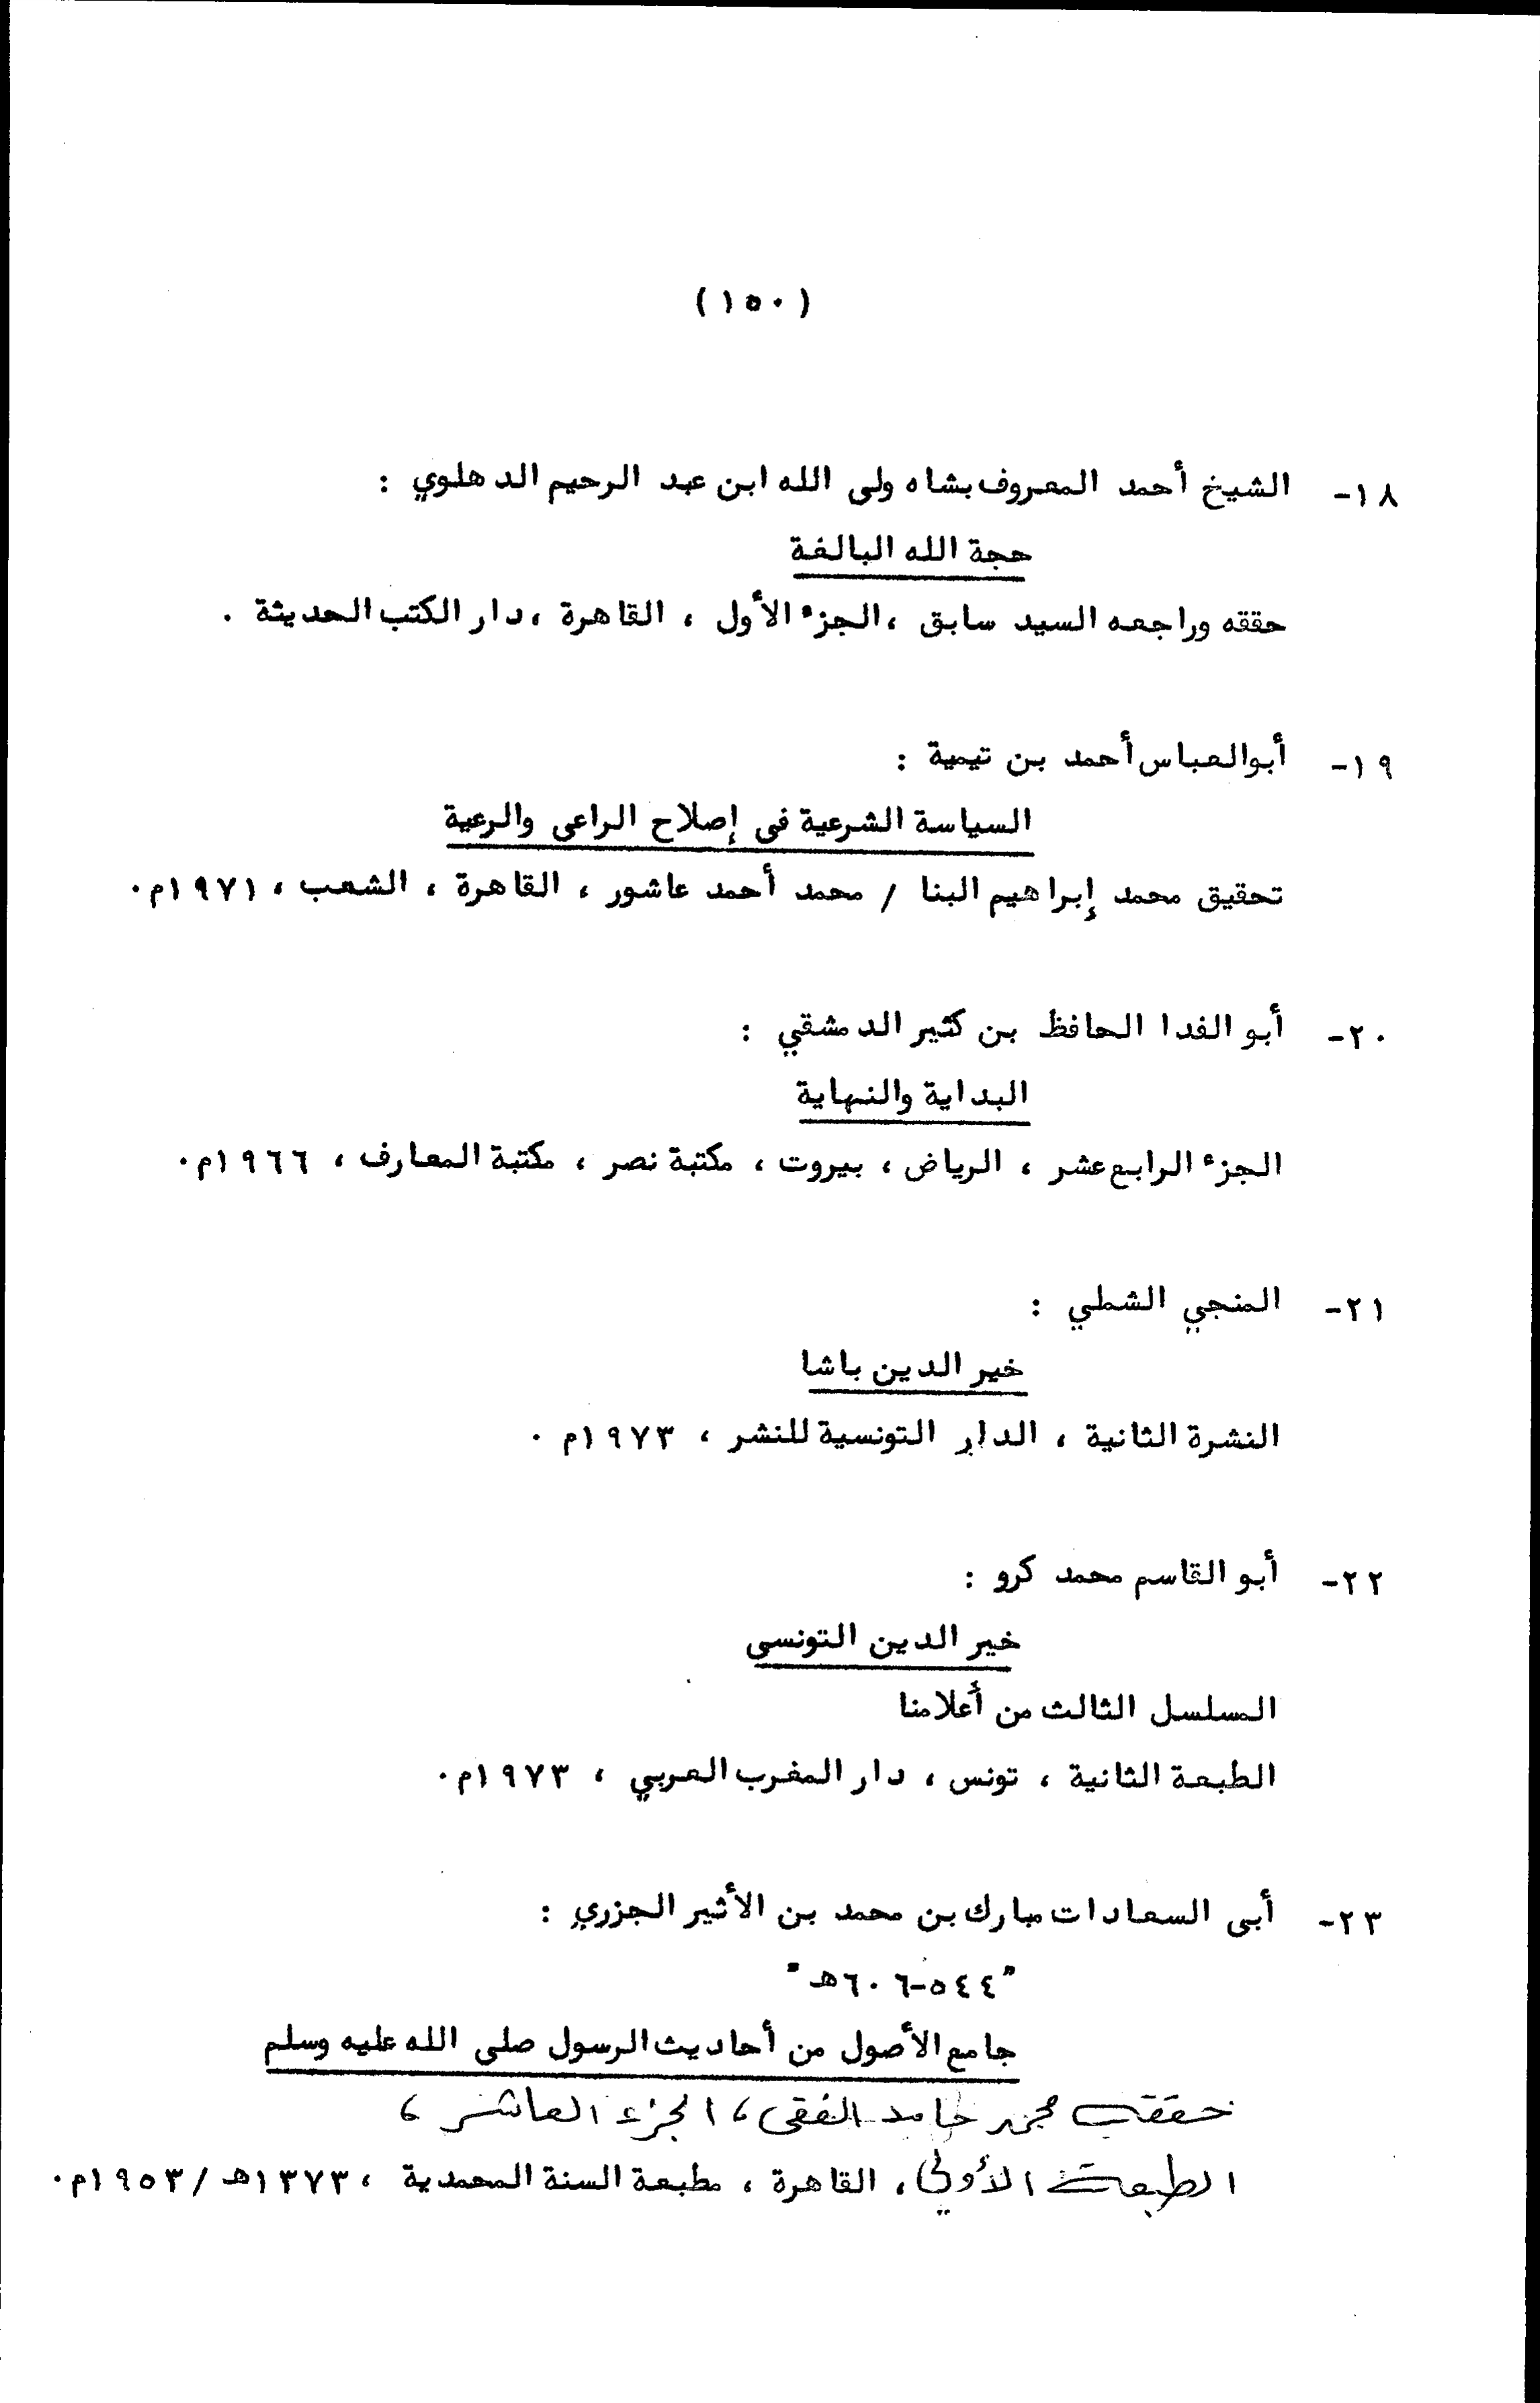 (١٥٠)
١٨- الشيخ أحمد المعروف بشاه ولى الله ابن عبد الرحيم الدهلوي :
حجة الله البالغة
حققه وراجعه السيد سابق ، الجزء الأول ، القاهرة ، دار الكتب الحديثة .
١٩- أبو العباس أحمد بن تيمية :
السياسة الشرعية فى إصلاح الراعى والرعية
تحقيق محمد إبراهيم البنا / محمد أحمد عاشور ، القاهرة ، الشعب ، ١٩٧١م.
٢٠- أبو الفدا الحافظ بن كثير الدمشقي :
البداية والنهاية
الجزء الرابع عشر ، الرياض ، بيروت ، مكتبة نصر ، مكتبة المعارف ، ١٩٦٦م.
٢١- المنجي الشطي :
خير الدين باشا
النشرة الثانية ، الدار التونسية للنشر ، ١٩٧٣م .
٢٢- أبو القاسم محمد كرو :
خير الدين التونسى
المسلسل الثالث من أعلامنا
الطبعة الثانية ، تونس ، دار المغرب العربي ، ١٩٧٣م.
٢٣- أبى السعادات مبارك بن محمد بن الأثير الجزري :
"٥٤٤-٦٠٦هـ"
جامع الأصول من أحاديث الرسول صلى الله عليه وسلم
حققه محمد حامد الفقى ، الجزء العاشر ،
الطبعة الأولى ، القاهرة ، مطبعة السنة المحمدية ، ١٣٧٣هـ / ١٩٥٣م.